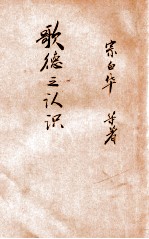 歌德之认识
宗白华 等著